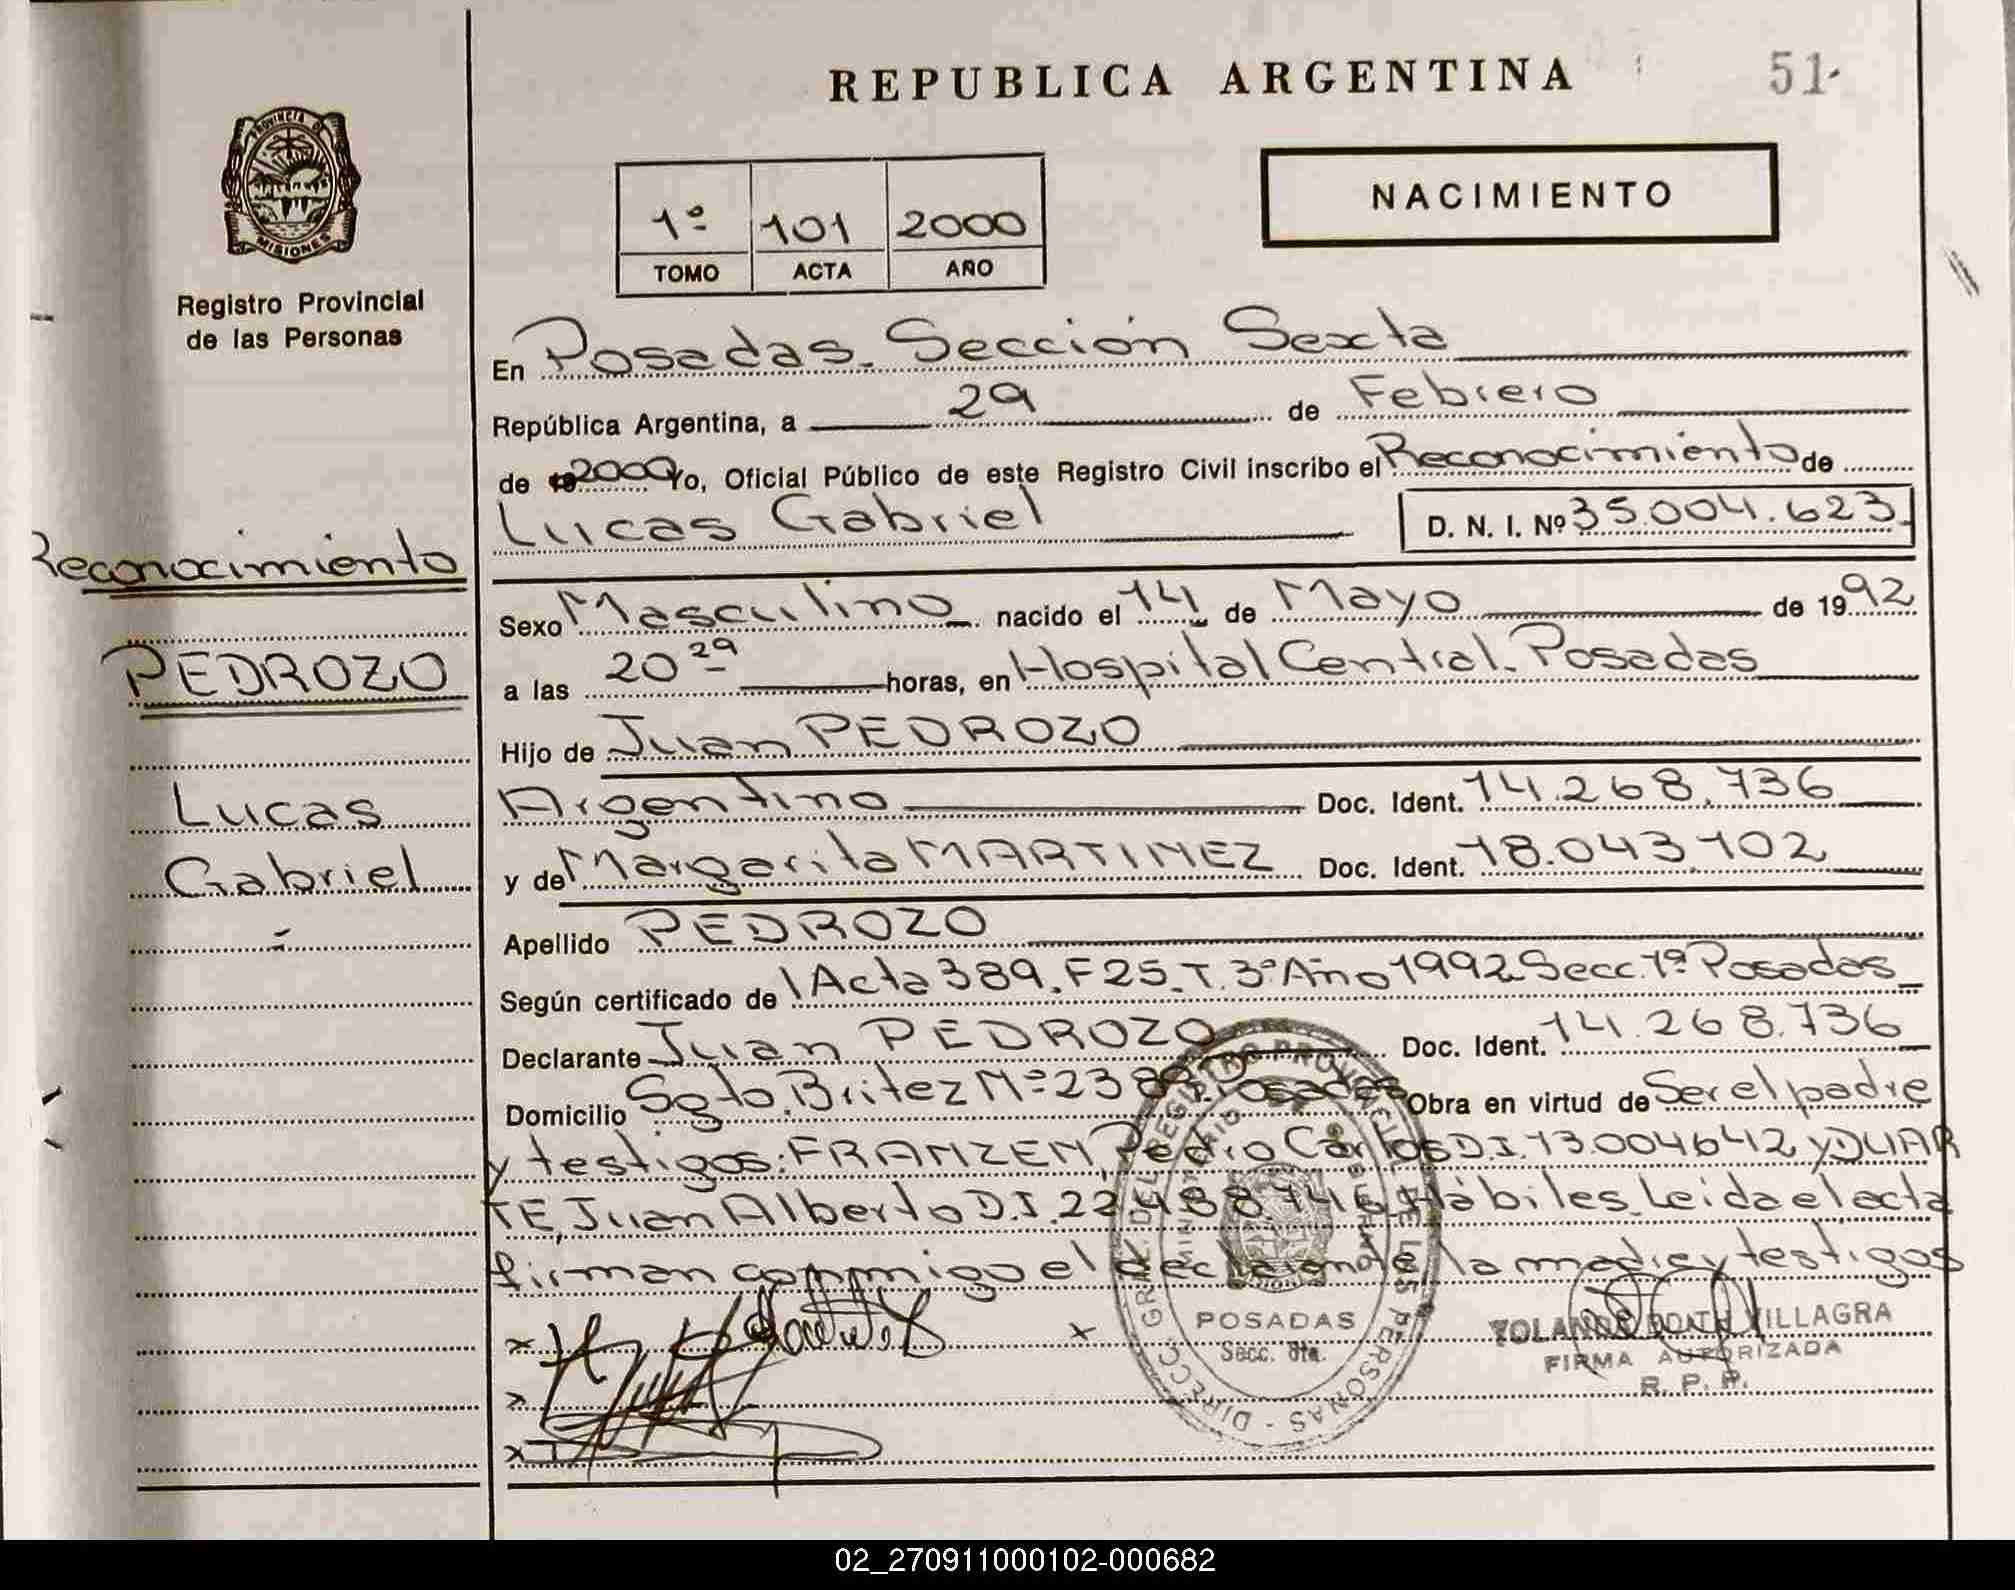 REPUBLICA ARGENTINA
51-
PROVINCIA DE
MISIONES
Registro Provincial
de las Personas
1º 101 2000
TOMO ACTA AÑO
NACIMIENTO
En Posadas. Sección Sexta
República Argentina, a 29 de Febrero
de 2000 Yo, Oficial Público de este Registro Civil inscribo el Reconocimiento de
Lucas Gabriel D. N. I. Nº 35.004.623
Reconocimiento
PEDROZO
Lucas
Gabriel
Sexo Masculino nacido el 14 de Mayo de 1992
a las 20 29 horas, en Hospital Central. Posadas
Hijo de Juan PEDROZO
Argentino Doc. Ident. 14.268.736
y de Margarita MARTINEZ Doc. Ident. 18.043.102
Apellido PEDROZO
Según certificado de Acta 389. F 25. T. 3º Año 1992 Secc. 1ª Posadas
Declarante Juan PEDROZO Doc. Ident. 14.268.736
Domicilio Sgto. Britez Nº 2389 Posadas Obra en virtud de Ser el padre
y testigos: FRANZEN, Pedro Carlos D.I. 13.004642 y DUAR
TE, Juan Alberto D.I. 22.488.746 Hábiles. Leida el acta
firman conmigo el declarante, la madre y testigos
DIRECC. GRAL. DEL REGISTRO PROVINCIAL DE LAS PERSONAS
MINISTERIO DE GOBIERNO
POSADAS
Secc. 6ta.
VILLAGRA
FIRMA AUTORIZADA
R. P. P.
02_270911000102-000682